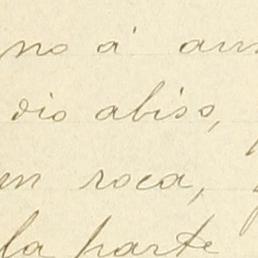 no á aus
dio abiso,
en roca,
la parte